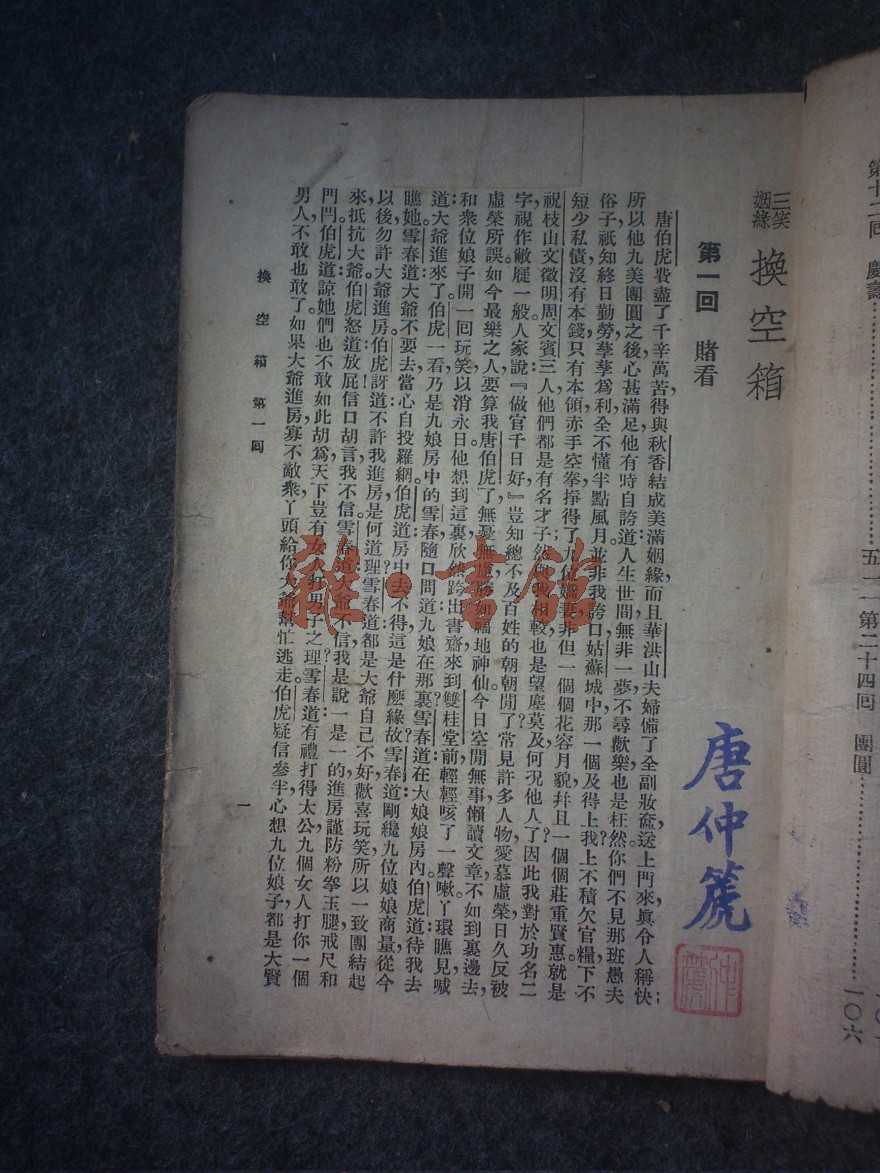 第十二回 慶壽
五一
第二十四回 團圓
一〇六
三笑姻緣 換空箱
第一回 賭看
唐伯虎費盡了千辛萬苦,得與秋香結成美滿姻緣,而且華洪山夫婦備了全副妝奩,送上門來,眞令人稱快;
所以他九美團圓之後,心甚滿足,他有時自誇道:人生世間,無非一夢,不尋歡樂,也是枉然,你們不見那班愚夫
俗子,祇知終日勤勞,孳孳爲利,全不懂半點風月,並非我誇口,姑蘇城中,那一個及得上我,上不積欠官糧,下不
短少私債,沒有本錢,只有本領,赤手空拳,掙得了九位嬌妻,非但一個個花容月貌,幷且一個個莊重賢惠,就是
祝枝山文徵明周文賓三人,他們都是有名才子,然與我相較,也是望塵莫及,何況他人了?因此我對於功名二
字,視作敝屣,一般人家說:『做官千日好,』豈知總不及百姓的朝朝閒了,常見許多人物,愛慕虛榮,日久反被
虛榮所誤,如今最樂之人,要算我唐伯虎了,無憂無慮,勝如福地神仙,今日空閒無事,懶讀文章,不如到裏邊去,
和衆位娘子開一回玩笑,以消永日,他想到這裏,欣然跨出書齋,來到雙桂堂前,輕輕咳了一聲嗽,丫環瞧見,喊
道:大爺進來了。伯虎一看,乃是九娘房中的雪春,隨口問道:九娘在那裏?雪春道:在大娘娘房內。伯虎道:待我去
瞧她。雪春道:大爺不要去,當心自投羅網。伯虎道:房中去不得,這是什麽緣故?雪春道:剛纔九位娘娘商量,從今
以後,勿許大爺進房。伯虎訝道:不許我進房,是何道理?雪春道:都是大爺自已不好,歡喜玩笑,所以一致團結起
來,抵抗大爺。伯虎怒道:放屁!信口胡言,我不信。雪春道:大爺不信,我是說一是一的,進房謹防粉拳玉腿,戒尺和
門閂。伯虎道:諒她們也不敢如此胡爲,天下豈有女人打男子之理?雪春道:有禮打得太公,九個女人打你一個
男人,不敢也敢了。如果大爺進房,寡不敵衆,丫頭給你大爺幫忙逃走。伯虎疑信參半,心想九位娘子,都是大賢
換空箱 第一回
一
唐仲篪
仲篪
雅·書館